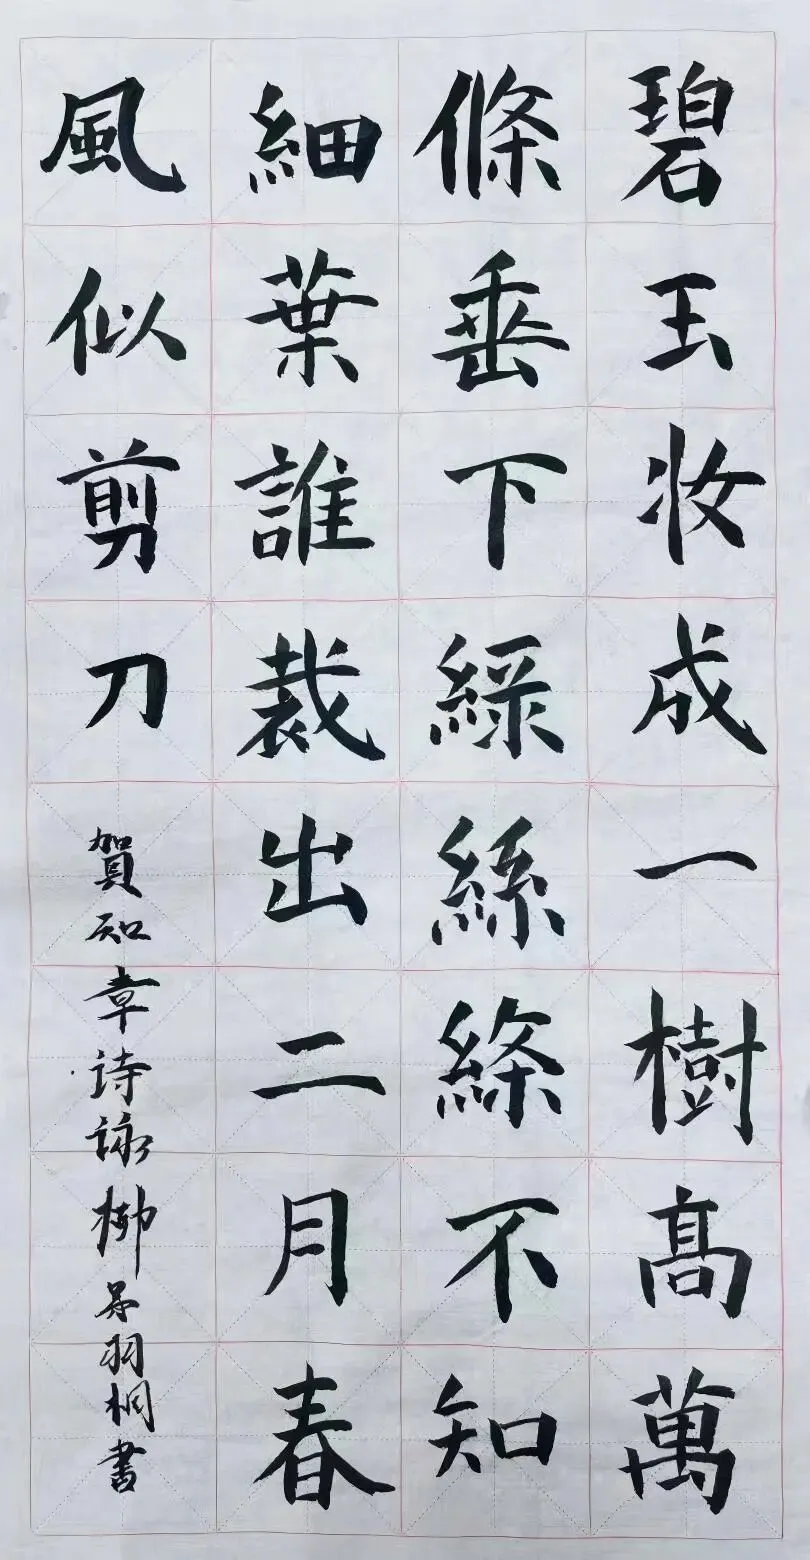 碧玉妆成一樹髙萬
條垂下綠絲絛不知
細葉誰裁出二月春
風似剪刀
賀知章詩詠柳 羽桐書